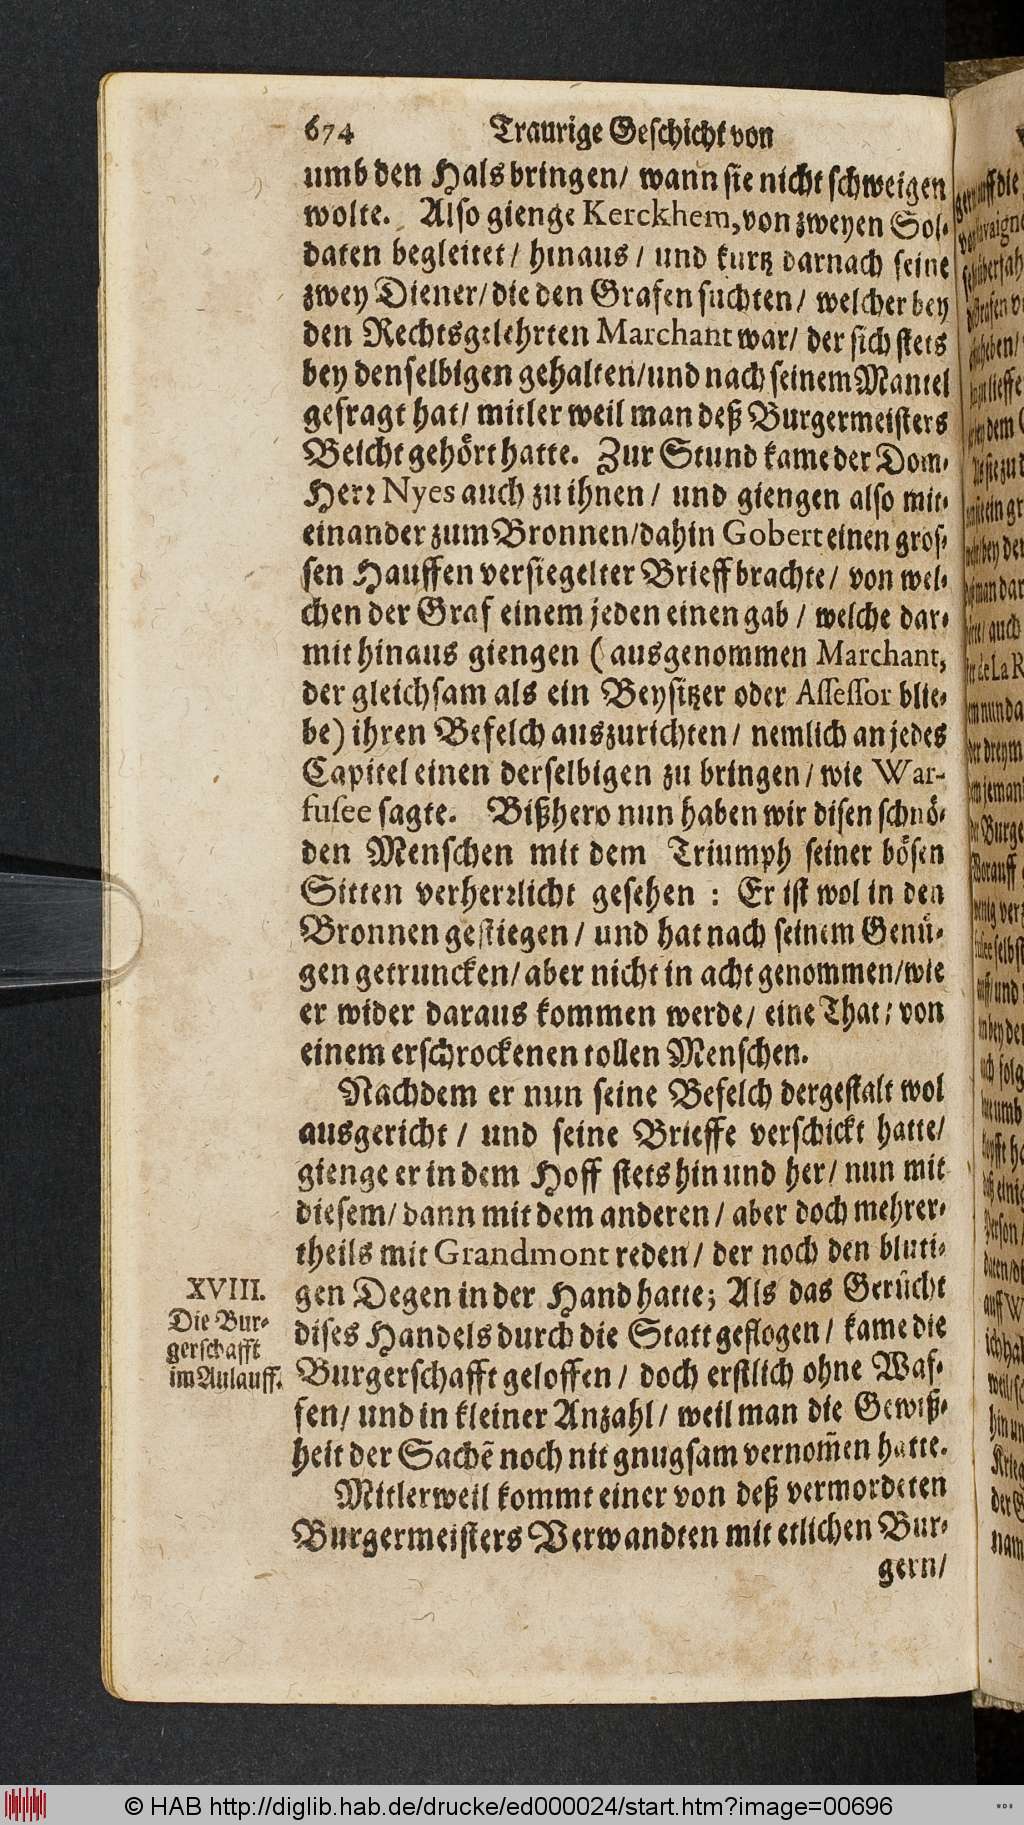 674 Traurige Geschicht von
umb den Hals bringen/ wann sie nicht schweigen
wolte. Also gienge Kerckhem, von zweyen Sol-
daten begleitet/ hinaus/ und kurtz darnach seine
zwey Diener/ die den Grafen suchten/ welcher bey
den Rechtsgelehrten Marchant war/ der sich stets
bey denselbigen gehalten/ und nach seinem Mantel
gefragt hat/ mitler weil man deß Burgermeisters
Beicht gehört hatte. Zur Stund kame der Dom-
Herr Nyes auch zu ihnen/ und giengen also mit-
einander zum Bronnen/ dahin Gobert einen gros-
sen Hauffen versiegelter Brieff brachte/ von wel-
chen der Graf einem jeden einen gab/ welche dar-
mit hinaus giengen (ausgenommen Marchant,
der gleichsam als ein Beysitzer oder Assessor blie-
be) ihren Befelch auszurichten/ nemlich an jedes
Capitel einen derselbigen zu bringen/ wie War-
fusee sagte. Bißhero nun haben wir disen schnö-
den Menschen mit dem Triumph seiner bösen
Sitten verherrlicht gesehen: Er ist wol in den
Bronnen gestiegen/ und hat nach seinem Genü-
gen getruncken/ aber nicht in acht genommen/ wie
er wider daraus kommen werde/ eine That; von
einem erschrockenen tollen Menschen.
Nachdem er nun seine Befelch dergestalt wol
ausgericht/ und seine Brieffe verschickt hatte/
gienge er in dem Hoff stets hin und her/ nun mit
diesem/ dann mit dem anderen/ aber doch mehrer-
theils mit Grandmont reden/ der noch den bluti-
gen Degen in der Hand hatte; Als das Gerücht
dises Handels durch die Statt geflogen/ kame die
Burgerschafft geloffen/ doch erstlich ohne Waf-
fen/ und in kleiner Anzahl/ weil man die Gewiß-
heit der Sachē noch nit gnugsam vernom̄en hatte.
Mitlerweil kommt einer von deß vermordeten
Burgermeisters Verwandten mit etlichen Bur-
gern/
XVIII.
Die Bur-
gerschafft
im Aulauff.
© HAB http://diglib.hab.de/drucke/ed000024/start.htm?image=00696